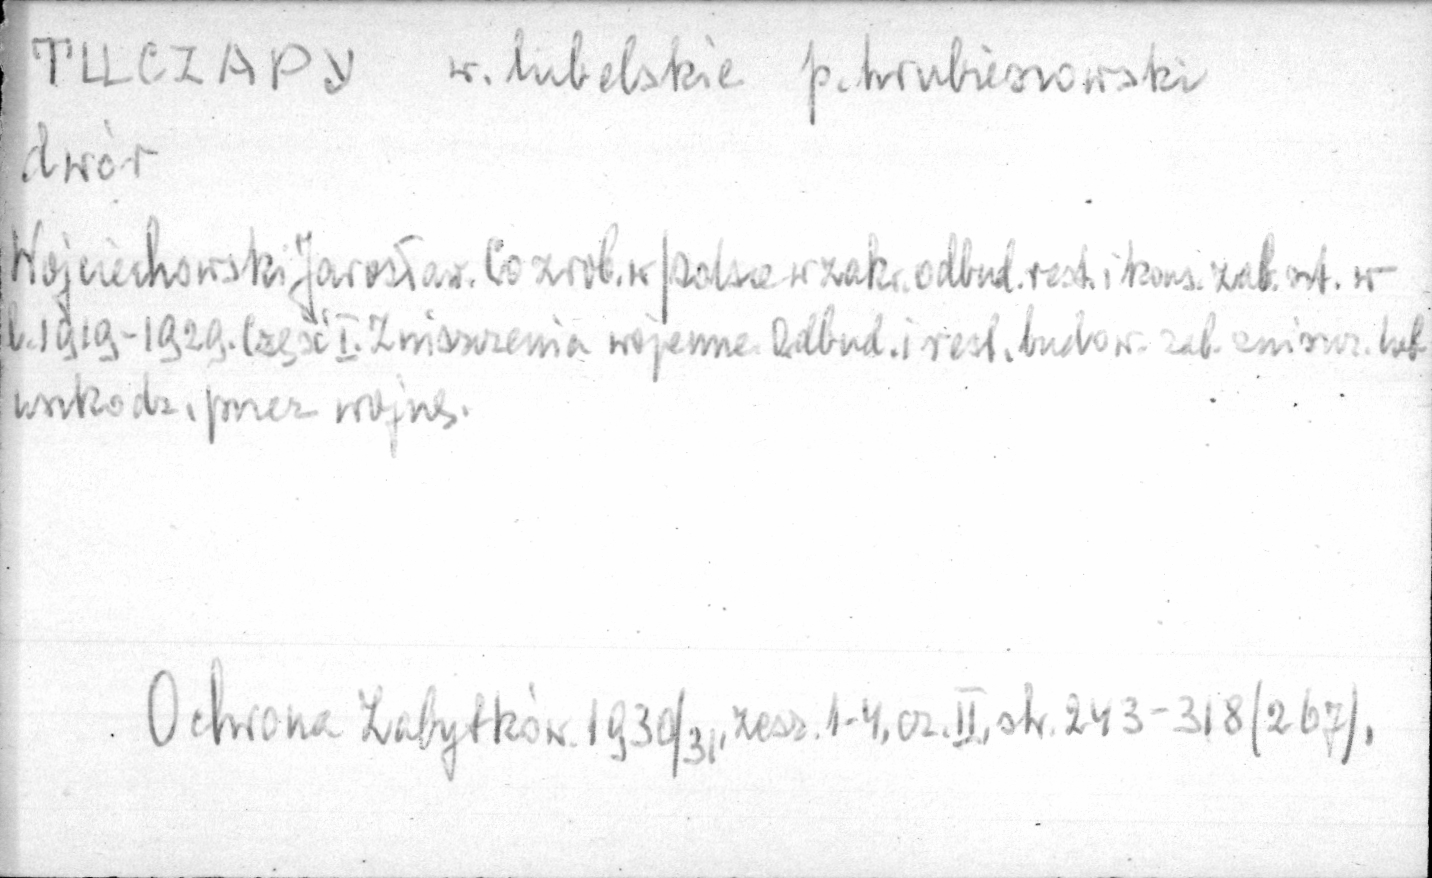 TUCZAPY w. lubelskie p. hrubieszowski
dwór
Wojciechowski Jarosław. Co zrob. w Polsce w zakr. odbud. rest. i kons. zab. szt. w
l. 1919-1929. Część I. Zniszczenia wojenne. Odbud. i rest. budow. zab. zniszcz. lub
uszkodz. przez wojnę.
Ochrona Zabytków. 1930/31, zesz. 1-4, cz. II, str. 243-318 (267).